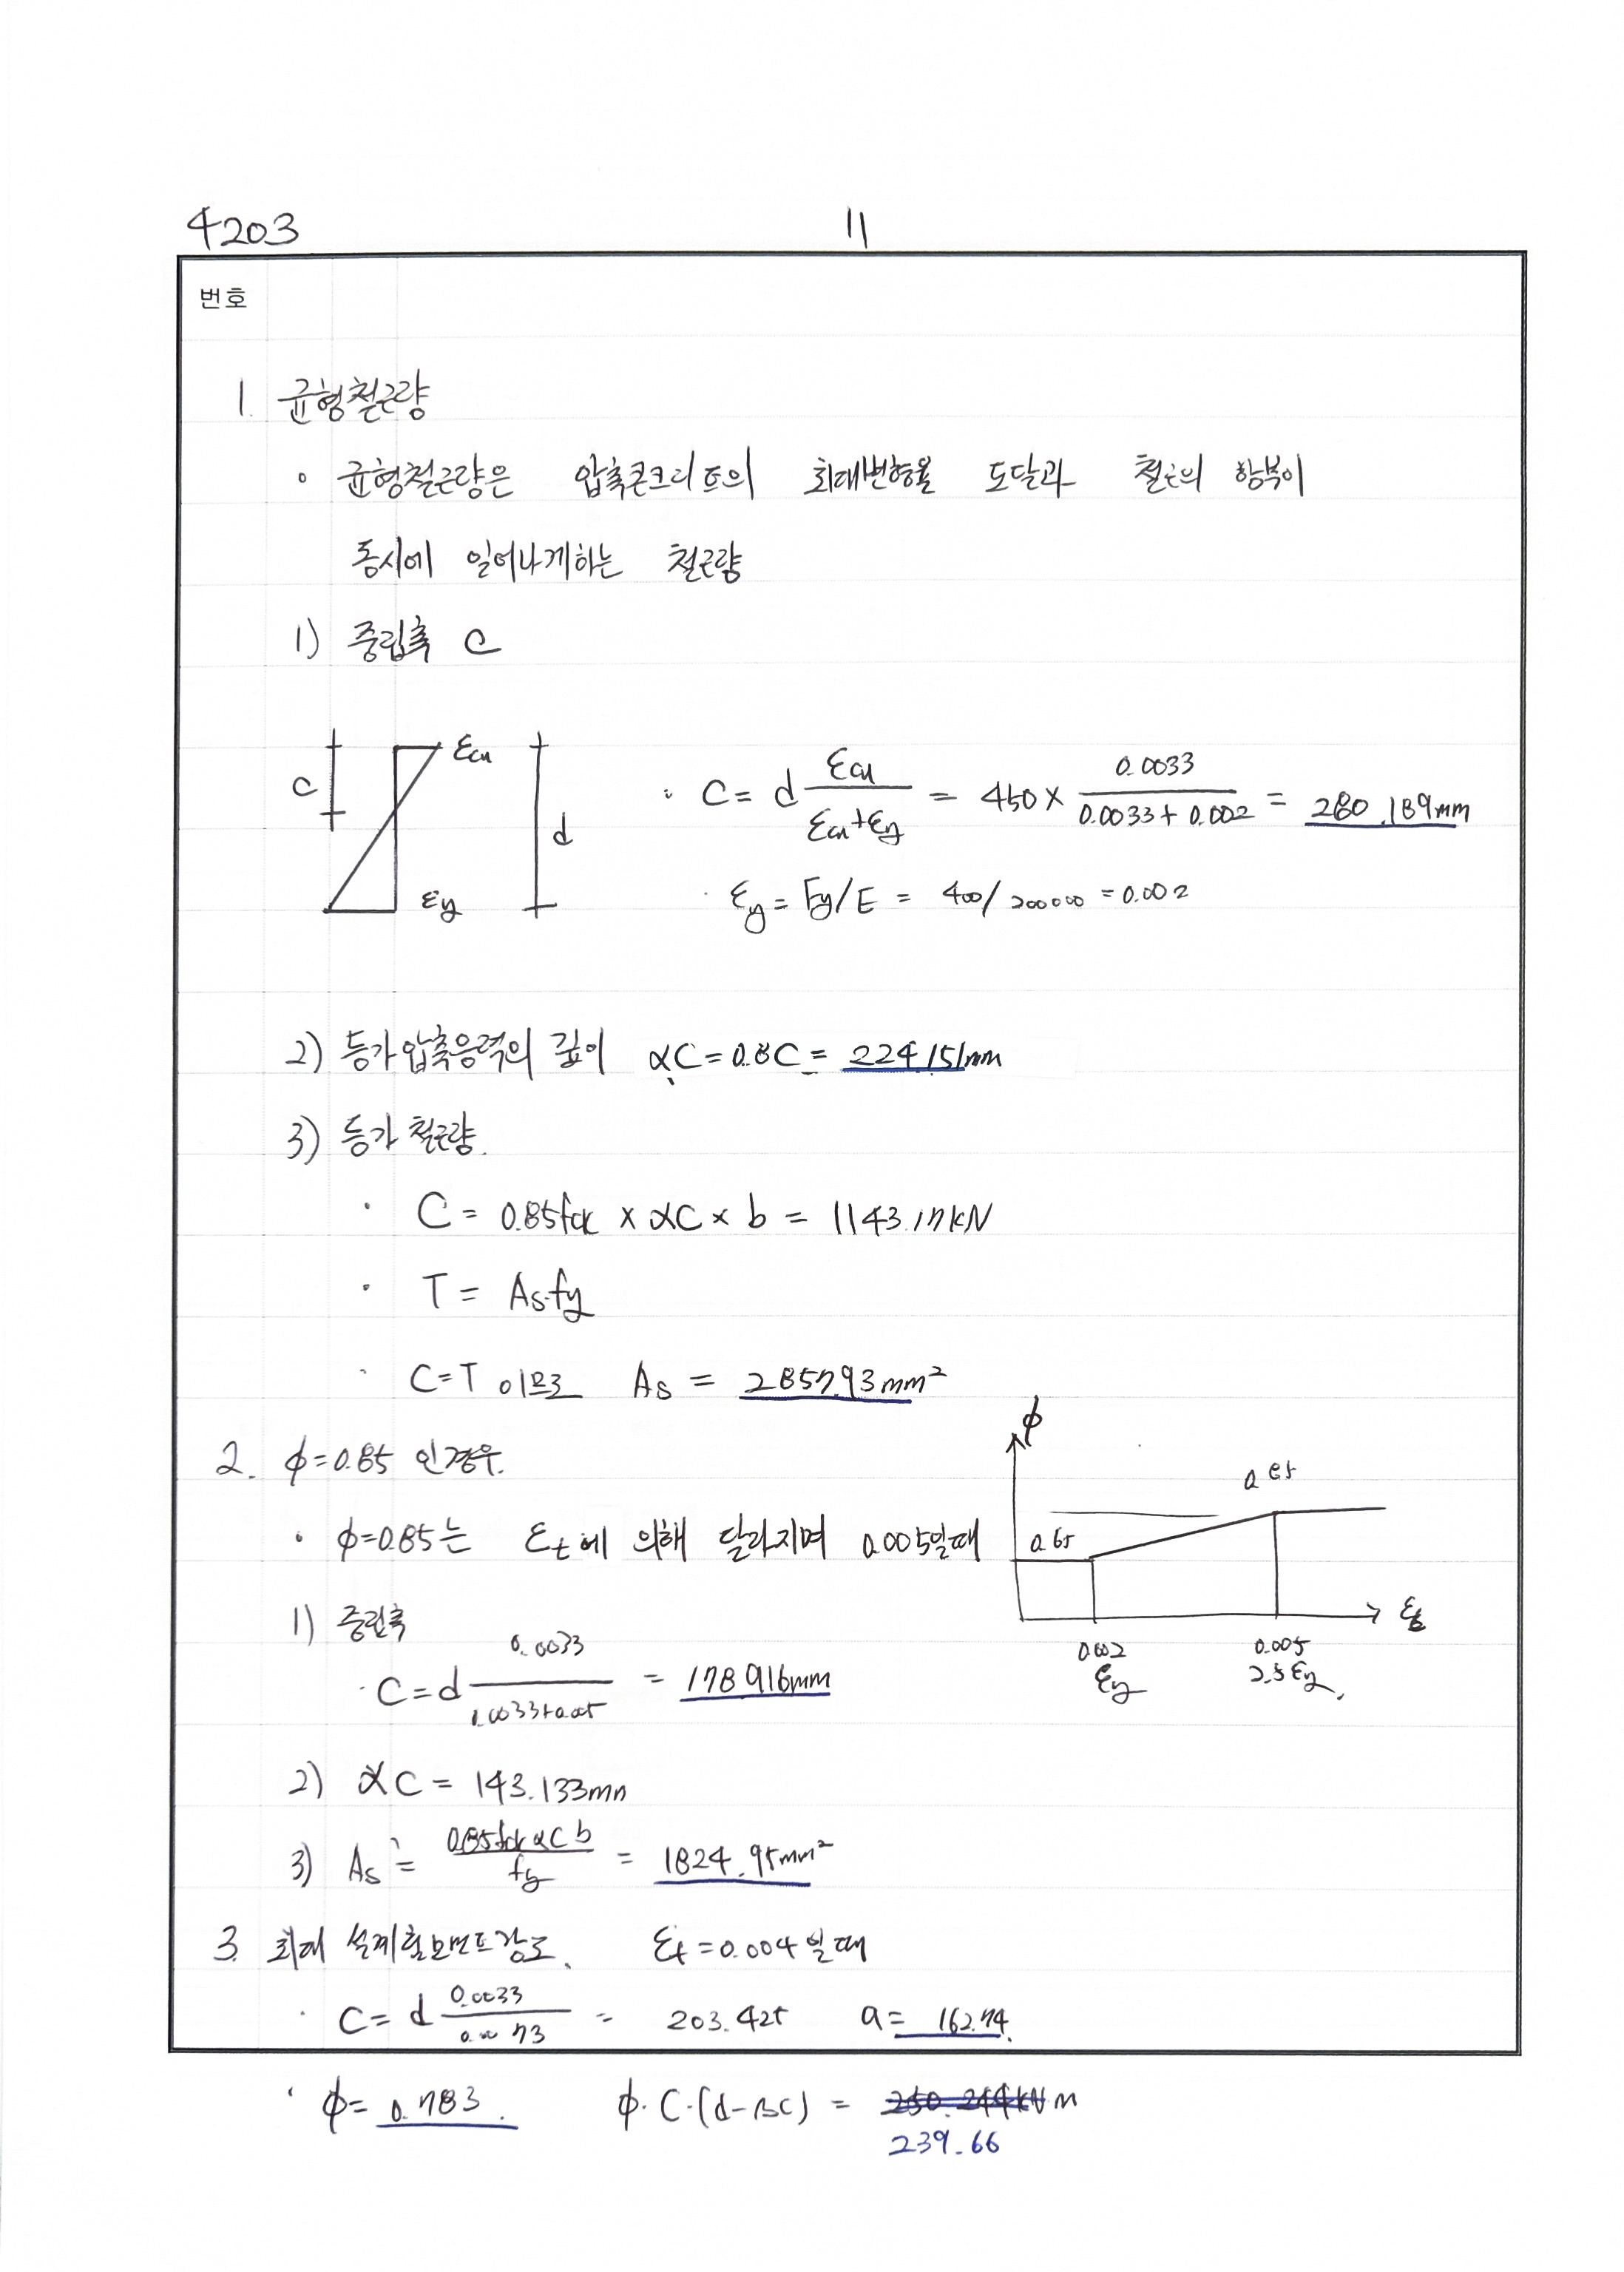 4203
11
번호
1. 균형철근량
◦ 균형철근량은 압축콘크리트의 최대변형율 도달과 철근의 항복이
동시에 일어나게하는 철근량
1) 중립축 C
C εcu d εy
· C = d εcu / (εcu+εy) = 450 × 0.0033 / (0.0033 + 0.002) = 280.189mm
· εy = Fy/E = 400/200000 = 0.002
2) 등가압축응력의 깊이 αC = 0.8C = 224.151mm
3) 등가 철근량.
· C = 0.85fck × αC × b = 1143.17kN
· T = As·fy
· C=T 이므로 As = 2857.93mm²
2. φ=0.85 인경우.
• φ=0.85는 εt에 의해 달라지며 0.005일때
φ
0.85
0.65
εt
0.002 0.005
εy 2.5εy
1) 중립축
· C = d 0.0033 / (0.0033+0.005) = 178.916mm
2) αC = 143.133mm
3) As = 0.85fck αC b / fy = 1824.95mm²
3. 최대 설계휨모멘트강도. εt = 0.004 일때
· C = d 0.0033 / 0.0073 = 203.425 a = 162.74.
· φ = 0.783. φ·C·(d-βC) = 250.244kN m
239.66